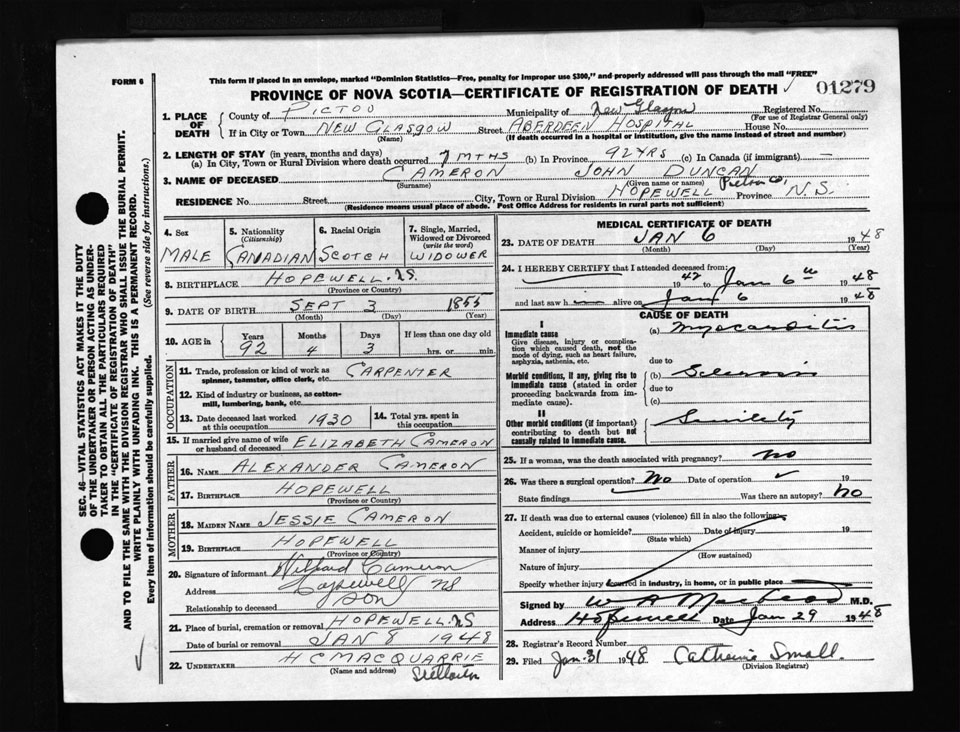 FORM 6
This form if placed in an envelope, marked "Dominion Statistics—Free, penalty for improper use $300," and properly addressed will pass through the mail "FREE"
PROVINCE OF NOVA SCOTIA—CERTIFICATE OF REGISTRATION OF DEATH
01279
1. PLACE OF DEATH
County of PICTOU Municipality of New Glasgow Registered No.
(For use of Registrar General only)
If in City or Town NEW GLASGOW Street ABERDEEN HOSPITAL House No.
(Name) (If death occurred in a hospital or institution, give the name instead of street and number)
2. LENGTH OF STAY (in years, months and days)
(a) In City, Town or Rural Division where death occurred 7 MTHS (b) In Province 92 YRS (c) In Canada (if immigrant) —
3. NAME OF DECEASED CAMERON JOHN DUNCAN
(Surname) (Given name or names)
RESIDENCE No. Street City, Town or Rural Division HOPEWELL Pictou Co, Province N.S.
(Residence means usual place of abode. Post Office Address for residents in rural parts not sufficient)
4. Sex
MALE
5. Nationality
(Citizenship)
CANADIAN
6. Racial Origin
SCOTCH
7. Single, Married, Widowed or Divorced
(write the word)
WIDOWER
8. BIRTHPLACE HOPEWELL. N.S.
(Province or Country)
9. DATE OF BIRTH SEPT 3 1855
(Month) (Day) (Year)
10. AGE in
Years Months Days If less than one day old
92 4 3 hrs. or min.
OCCUPATION
11. Trade, profession or kind of work as
spinner, teamster, office clerk, etc. CARPENTER
12. Kind of industry or business, as cotton-
mill, lumbering, bank, etc.
13. Date deceased last worked
at this occupation 1930
14. Total yrs. spent in
this occupation
15. If married give name of wife
or husband of deceased ELIZABETH CAMERON
FATHER
16. NAME ALEXANDER CAMERON
17. BIRTHPLACE HOPEWELL
(Province or Country)
MOTHER
18. MAIDEN NAME JESSIE CAMERON
19. BIRTHPLACE HOPEWELL
(Province or Country)
20. Signature of informant Wilfred Cameron
Address Hopewell NS
Relationship to deceased SON
21. Place of burial, cremation or removal HOPEWELL. NS
Date of burial or removal JAN 8 1948
22. UNDERTAKER H C MACQUARRIE
(Name and address) Stellarton
MEDICAL CERTIFICATE OF DEATH
23. DATE OF DEATH JAN 6 1948
(Month) (Day) (Year)
24. I HEREBY CERTIFY that I attended deceased from:
1947 to Jan 6th 1948
and last saw him alive on Jan 6 1948
CAUSE OF DEATH
I
Immediate cause
Give disease, injury or complication which caused death, not the mode of dying, such as heart failure, asphyxia, asthenia, etc.
(a) Myocarditis
due to
Morbid conditions, if any, giving rise to immediate cause (stated in order proceeding backwards from immediate cause).
(b) Sclerosis
due to
(c)
II
Other morbid conditions (if important) contributing to death but not causally related to immediate cause.
Senility
25. If a woman, was the death associated with pregnancy? no
26. Was there a surgical operation? No Date of operation 19
State findings Was there an autopsy? no
27. If death was due to external causes (violence) fill in also the following:
Accident, suicide or homicide? Date of injury 19
(State which)
Manner of injury
(How sustained)
Nature of injury
Specify whether injury occurred in industry, in home, or in public place
Signed by W A MacLeod M.D.
Address Hopewell Date Jan 29 1948
28. Registrar's Record Number
29. Filed Jan. 31 1948 Catherine Small.
(Division Registrar)
SEC. 46—VITAL STATISTICS ACT MAKES IT THE DUTY
OF THE UNDERTAKER OR PERSON ACTING AS UNDER-
TAKER TO OBTAIN ALL THE PARTICULARS REQUIRED
IN THE "CERTIFICATE OF REGISTRATION OF DEATH"
AND TO FILE THE SAME WITH THE DIVISION REGISTRAR WHO SHALL ISSUE THE BURIAL PERMIT.
WRITE PLAINLY WITH UNFADING INK. THIS IS A PERMANENT RECORD.
Every item of information should be carefully supplied. (See reverse side for instructions.)